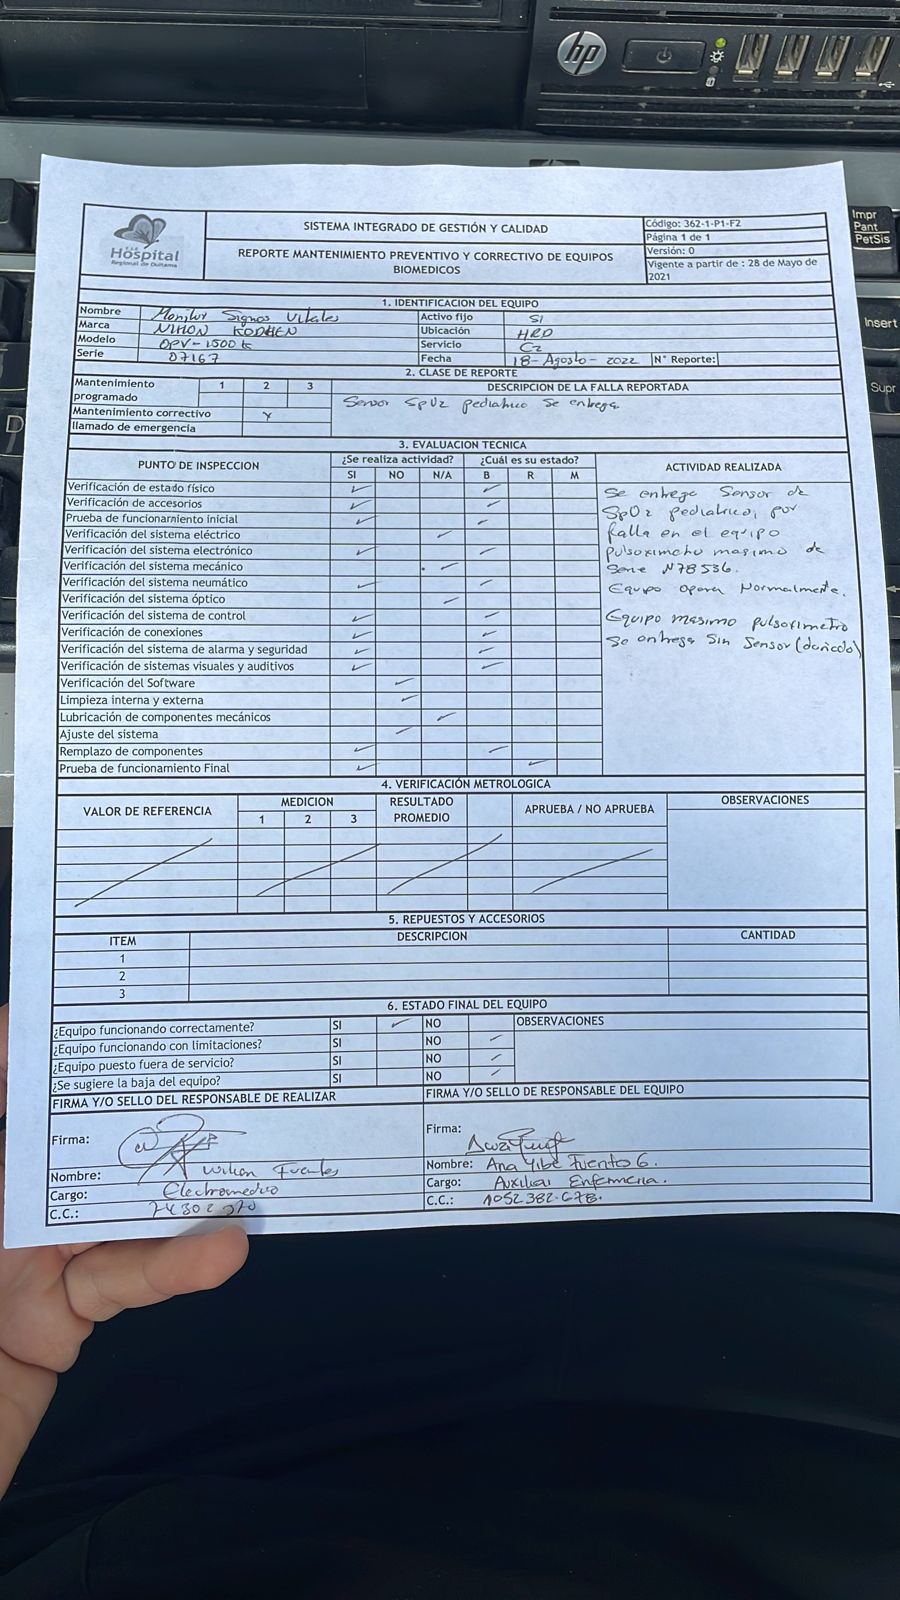 hp
Impr
Pant
PetSis
Insert
Supr
D
E.S.E.
Hospital
Regional de Duitama
SISTEMA INTEGRADO DE GESTIÓN Y CALIDAD
REPORTE MANTENIMIENTO PREVENTIVO Y CORRECTIVO DE EQUIPOS
BIOMEDICOS
Código: 362-1-P1-F2
Página 1 de 1
Versión: 0
Vigente a partir de : 28 de Mayo de
2021
1. IDENTIFICACION DEL EQUIPO
Nombre Monitor Signos Vitales Activo fijo SI
Marca NIHON KODHEN Ubicación HRD
Modelo OPV-1500 K Servicio C2
Serie 07167 Fecha 18-Agosto-2022 N° Reporte:
2. CLASE DE REPORTE
Mantenimiento programado 1 2 3 DESCRIPCION DE LA FALLA REPORTADA
Mantenimiento correctivo x Sensor SpO2 pediatrico Se entrega
llamado de emergencia
3. EVALUACION TECNICA
PUNTO DE INSPECCION ¿Se realiza actividad? ¿Cuál es su estado? ACTIVIDAD REALIZADA
SI NO N/A B R M
Verificación de estado físico
Verificación de accesorios
Prueba de funcionamiento inicial
Verificación del sistema eléctrico
Verificación del sistema electrónico
Verificación del sistema mecánico
Verificación del sistema neumático
Verificación del sistema óptico
Verificación del sistema de control
Verificación de conexiones
Verificación del sistema de alarma y seguridad
Verificación de sistemas visuales y auditivos
Verificación del Software
Limpieza interna y externa
Lubricación de componentes mecánicos
Ajuste del sistema
Remplazo de componentes
Prueba de funcionamiento Final
Se entrega Sensor de
SpO2 pediatrico, por
falla en el equipo
pulsoximetro masimo de
Serie N78536.
Equipo opera Normalmente.
Equipo masimo pulsoximetro
Se entrega Sin Sensor (dañado)
4. VERIFICACIÓN METROLOGICA
VALOR DE REFERENCIA MEDICION RESULTADO PROMEDIO APRUEBA / NO APRUEBA OBSERVACIONES
1 2 3
5. REPUESTOS Y ACCESORIOS
ITEM DESCRIPCION CANTIDAD
1
2
3
6. ESTADO FINAL DEL EQUIPO
¿Equipo funcionando correctamente? SI NO OBSERVACIONES
¿Equipo funcionando con limitaciones? SI NO
¿Equipo puesto fuera de servicio? SI NO
¿Se sugiere la baja del equipo? SI NO
FIRMA Y/O SELLO DEL RESPONSABLE DE REALIZAR FIRMA Y/O SELLO DE RESPONSABLE DEL EQUIPO
Firma: Firma:
Nombre: Wilson Fuentes Nombre: Ana Yibe Fuentes G.
Cargo: Electromedico Cargo: Auxiliar Enfermeria.
C.C.: C.C.: 1052.382.678.